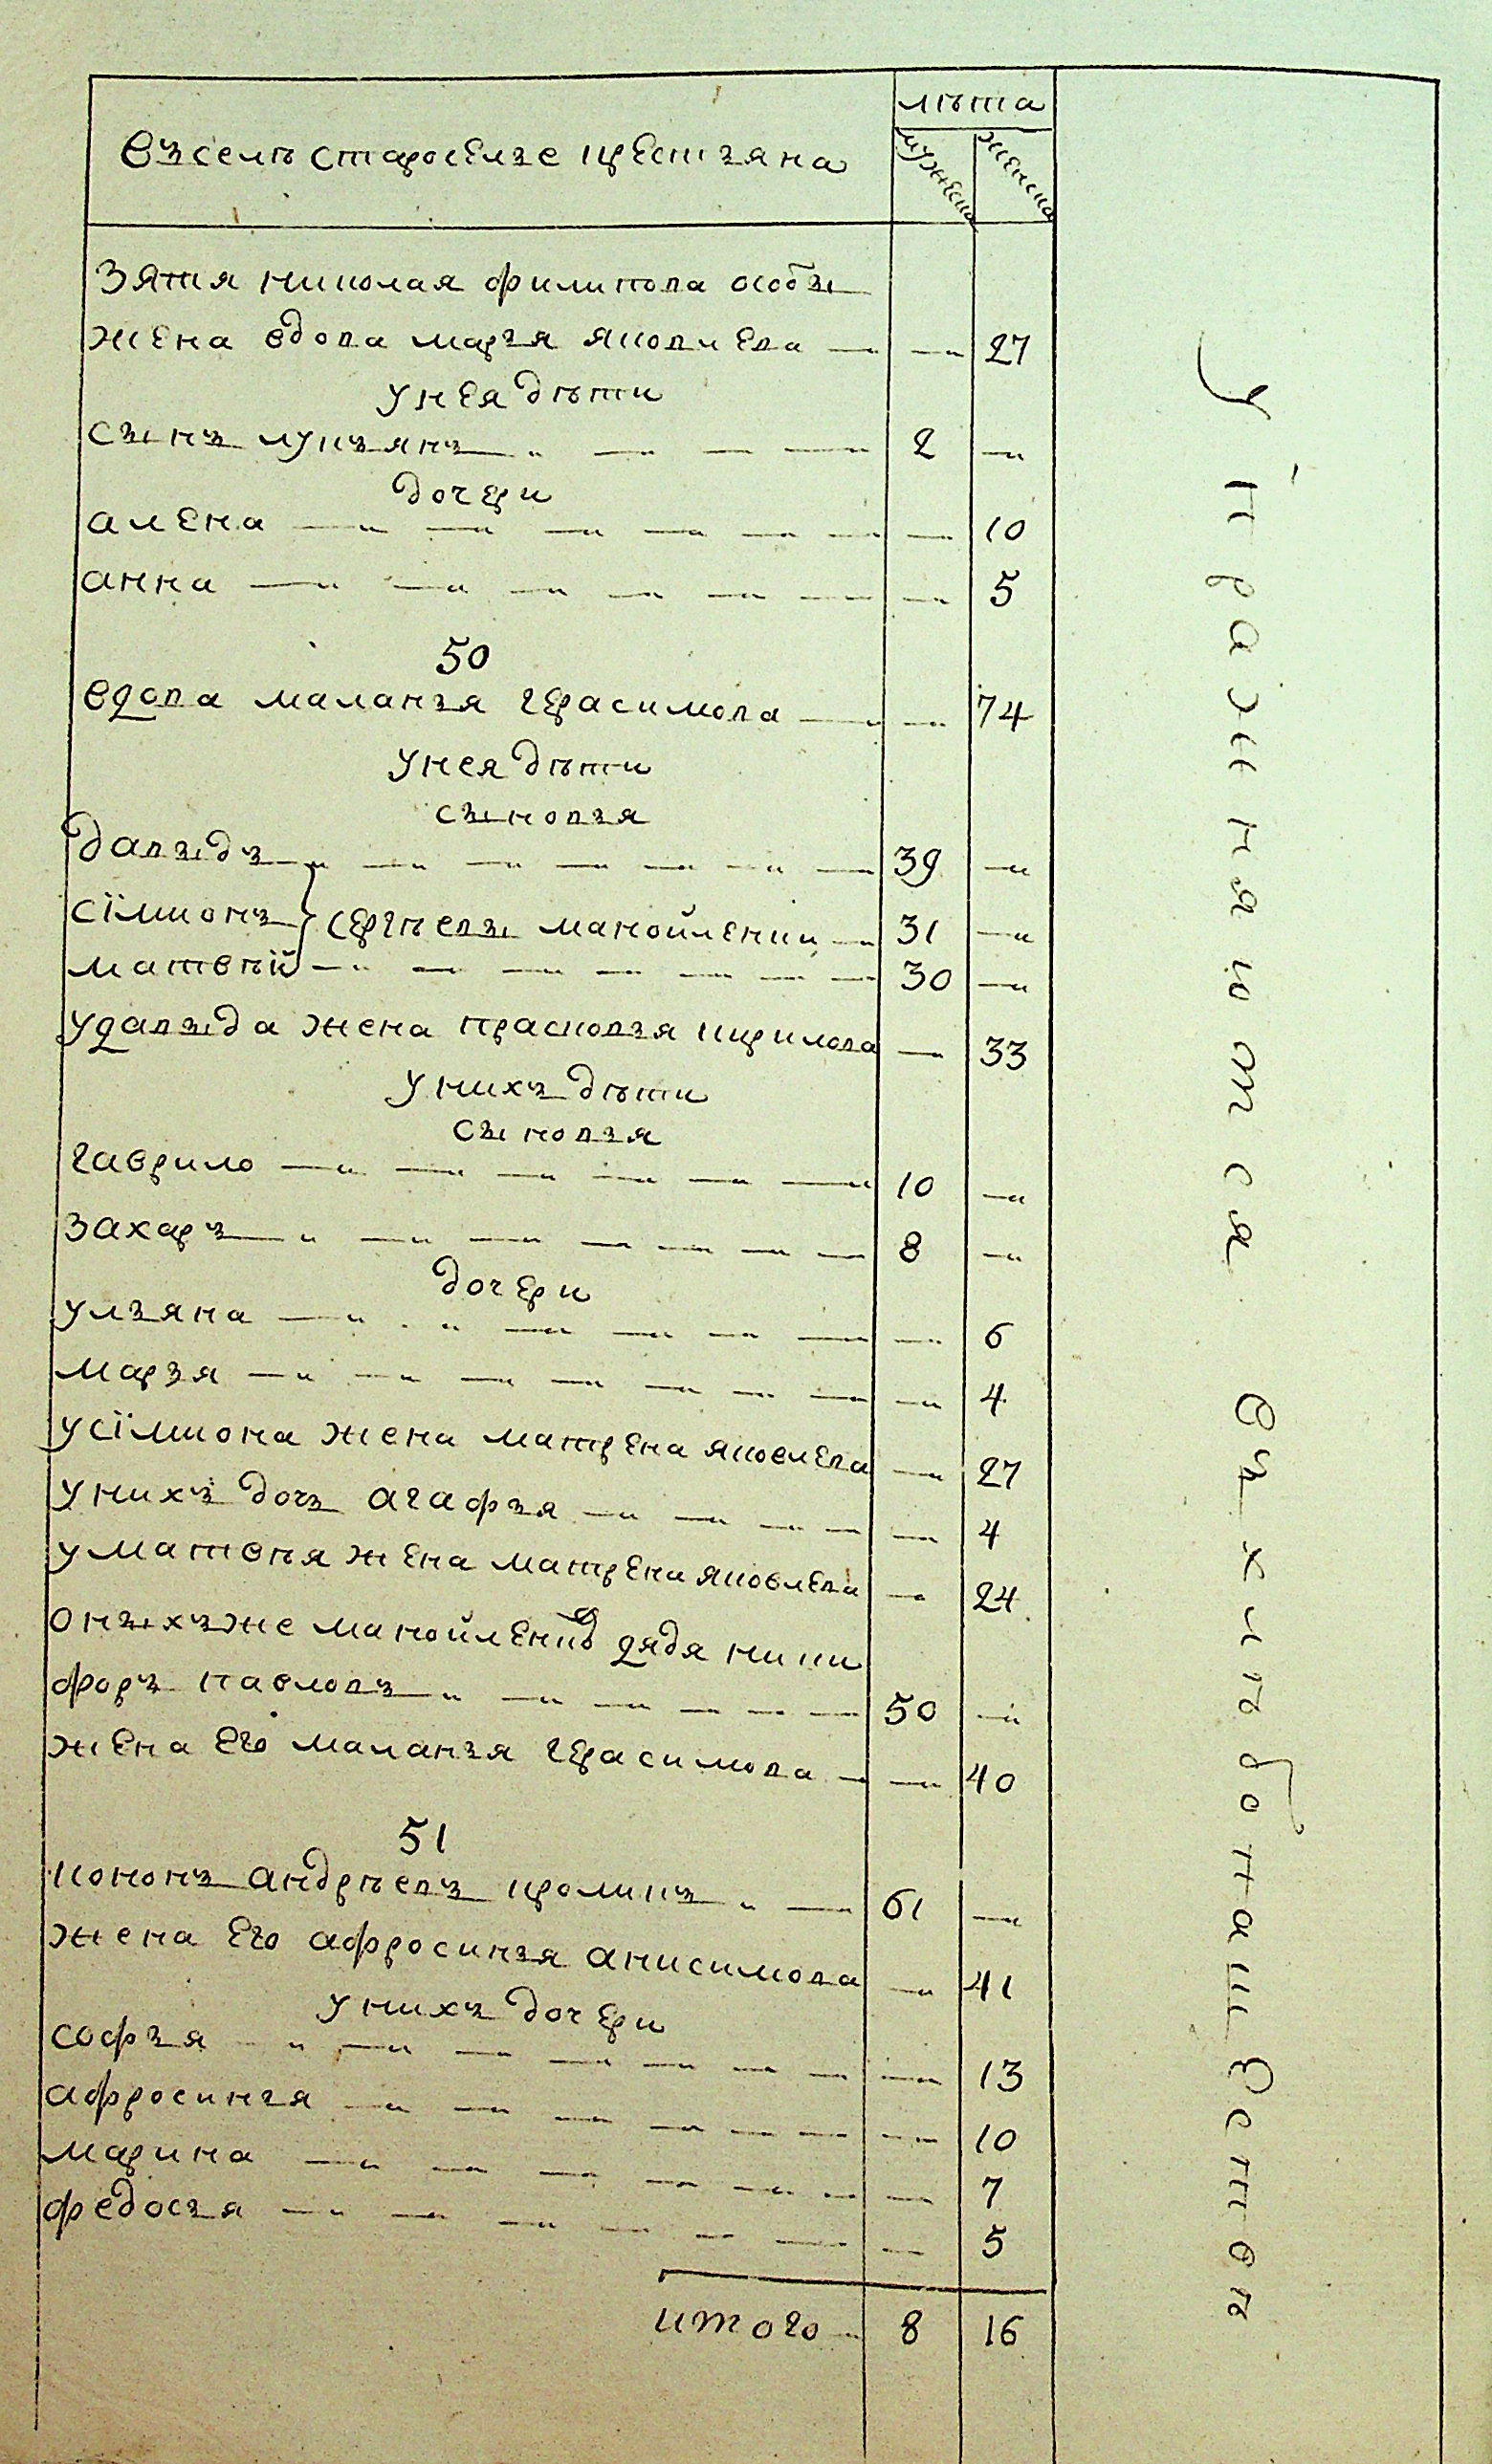 въселѣ староселье крестьяна
лѣта
мужеска
женска
зятя николая филипова особы
жена вдова марья яковлева 27
унея дѣти
сынъ лукъянъ 2
дочери
алена 10
анна 5
50
вдова маланья герасимова 74
унея дѣти
сыновья
давыдъ 39
сїмионъ } сергѣевы манойленки 31
матвѣй 30
удавыда жена прасковья кирилова 33
унихъ дѣти
сыновья
гаврило 10
захаръ 8
дочери
ульяна 6
марья 4
усїмиона жена матрена яковлева 27
унихъ дочь агафья 4
уматвѣя жена матрена яковлева 24
оныхъже манойленков дядя ники
форъ павловъ 50
жена его маланья герасимова 40
51
кононъ андрѣевъ кромикъ 61
жена его афросинья анисимова 41
унихъ дочери
софья 13
афросинья 10
марина 7
федосья 5
итого 8 16
Упражняются въхлѣбопашествѣ